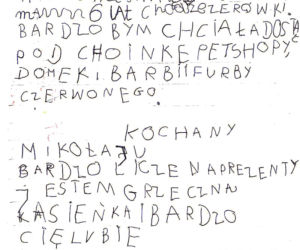 6 LAT CHODZĘ ZERÓWKI.
BARDZO BYM CHCIAŁA DOSTAĆ
POD CHOINKE PETSHOPY,
DOMEK I. BARBII FURBY
CZERWONEGO.
KOCHANY
MIKOŁAJU
BARDZO LICZE NA PREZENTY
JESTEM GRZECZNA
KASIEŃKA I BARDZO
CIĘ LUBIE